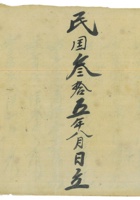 民国叁拾五年八月日立